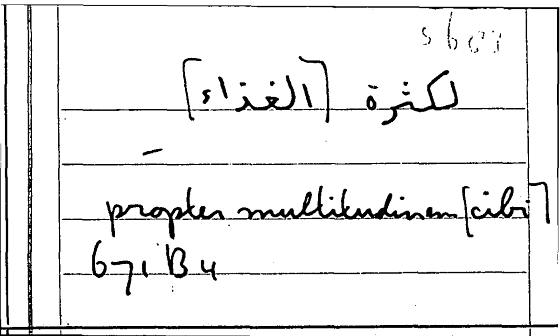 لكثرة [الغذاء]
–
propter multitudinem [cibi]
671 B 4